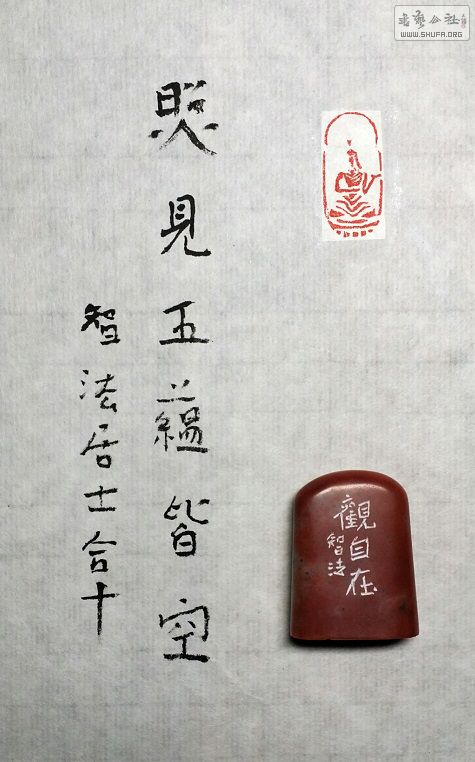 書藝公社
WWW.SHUFA.ORG
照見五蘊皆空
智法居士合十
觀自在
智法